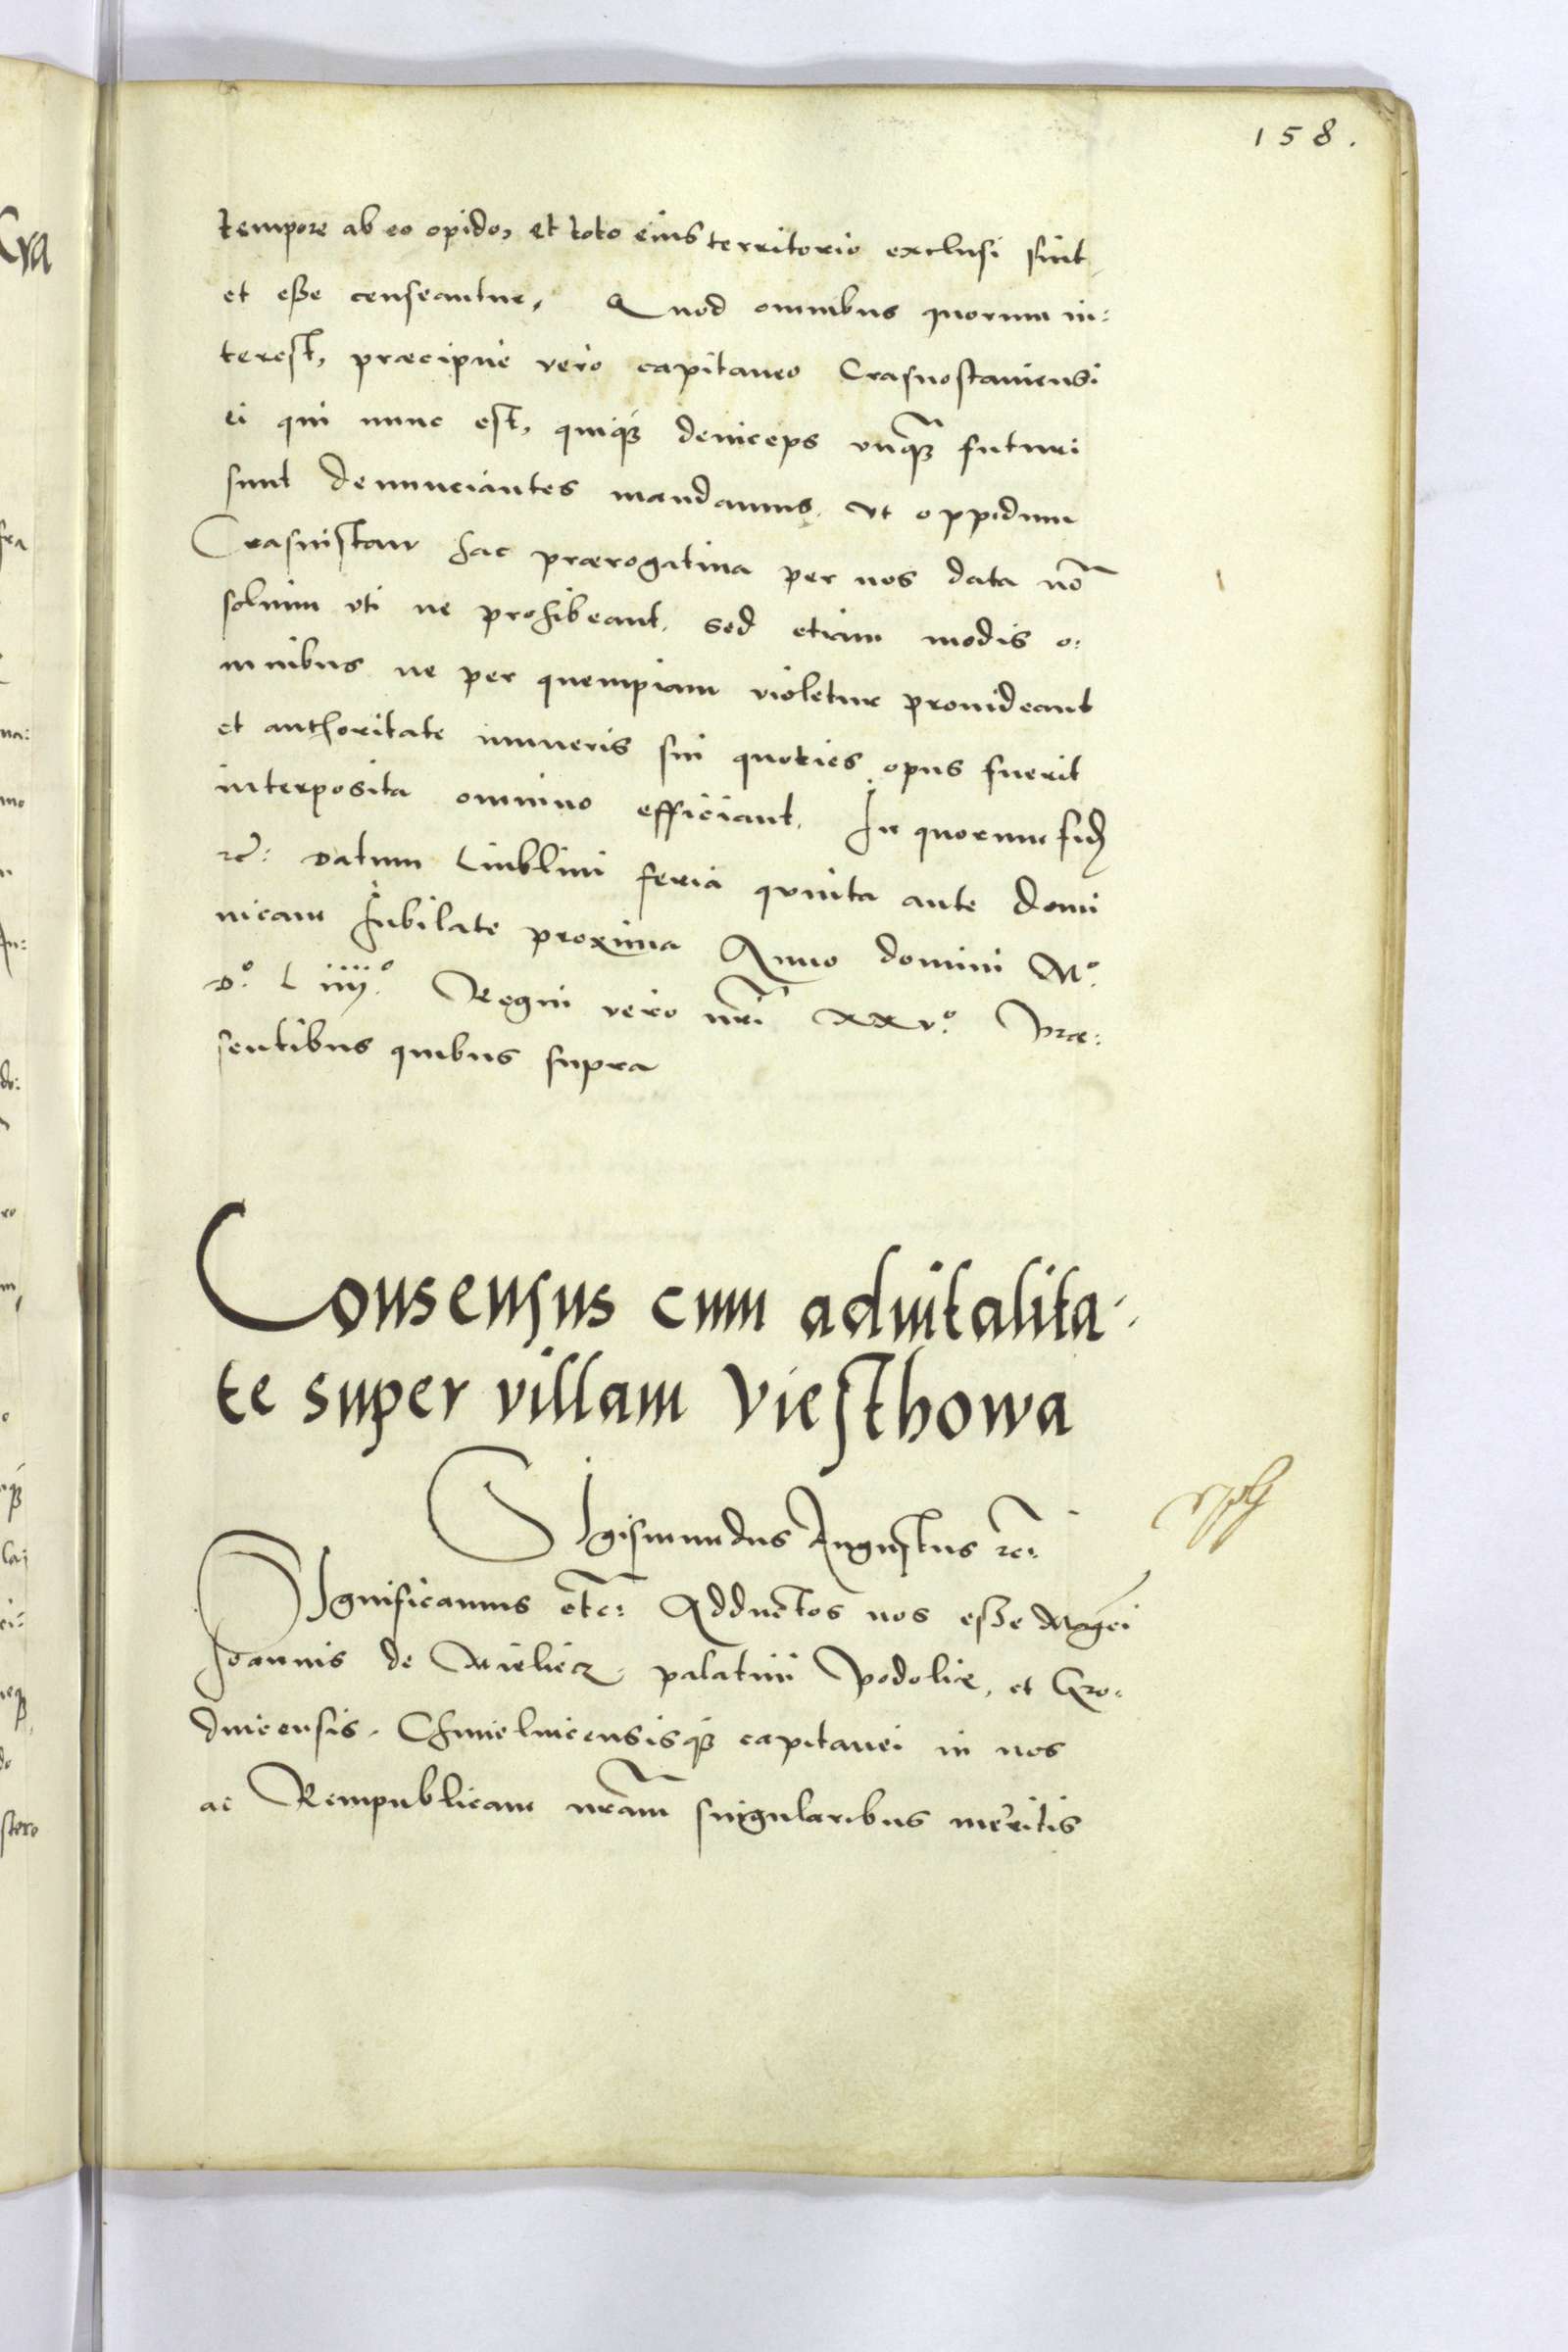 158.
tempore ab eo opido, et toto eius territorio exclusi sint
et esse censeantur, Quod omnibus quorum in:
terest, præcipue vero capitaneo Crasnostaviensi
ei qui nunc est, quiqȝ deinceps vnqȝ̃ futuri
sunt denunciantes mandamus. vt oppidum
Crasnistaw hac prærogatiua per nos data nõ
solum vti ne prohibeant. sed etiam modis o:
mnibus ne per quempiam violetur prouideant
et authoritate muneris sui quoties opus fuerit
interposita omnino efficiant. In quorum fidẽ
rc̃: Datum Liublini feria quinta ante domi
nicam Jubilate proxima Anno domini Mº.
Dº. L iiijº. Regni vero nr̃i xxvº. Præ:
sentibus quibus supra
Consensus cum aduitalita:
te super villam Viesthowa
SIgismundus Augustus rc̃:
SIgnificamus etc̃: Adductos nos esse Mag̃ci
Joannis de Mieliecz, palatini Podoliæ, et Gro:
dnicensis. Chmielnicensisqȝ capitanei in nos
ac Rempublicam nr̃am singularibus meritis